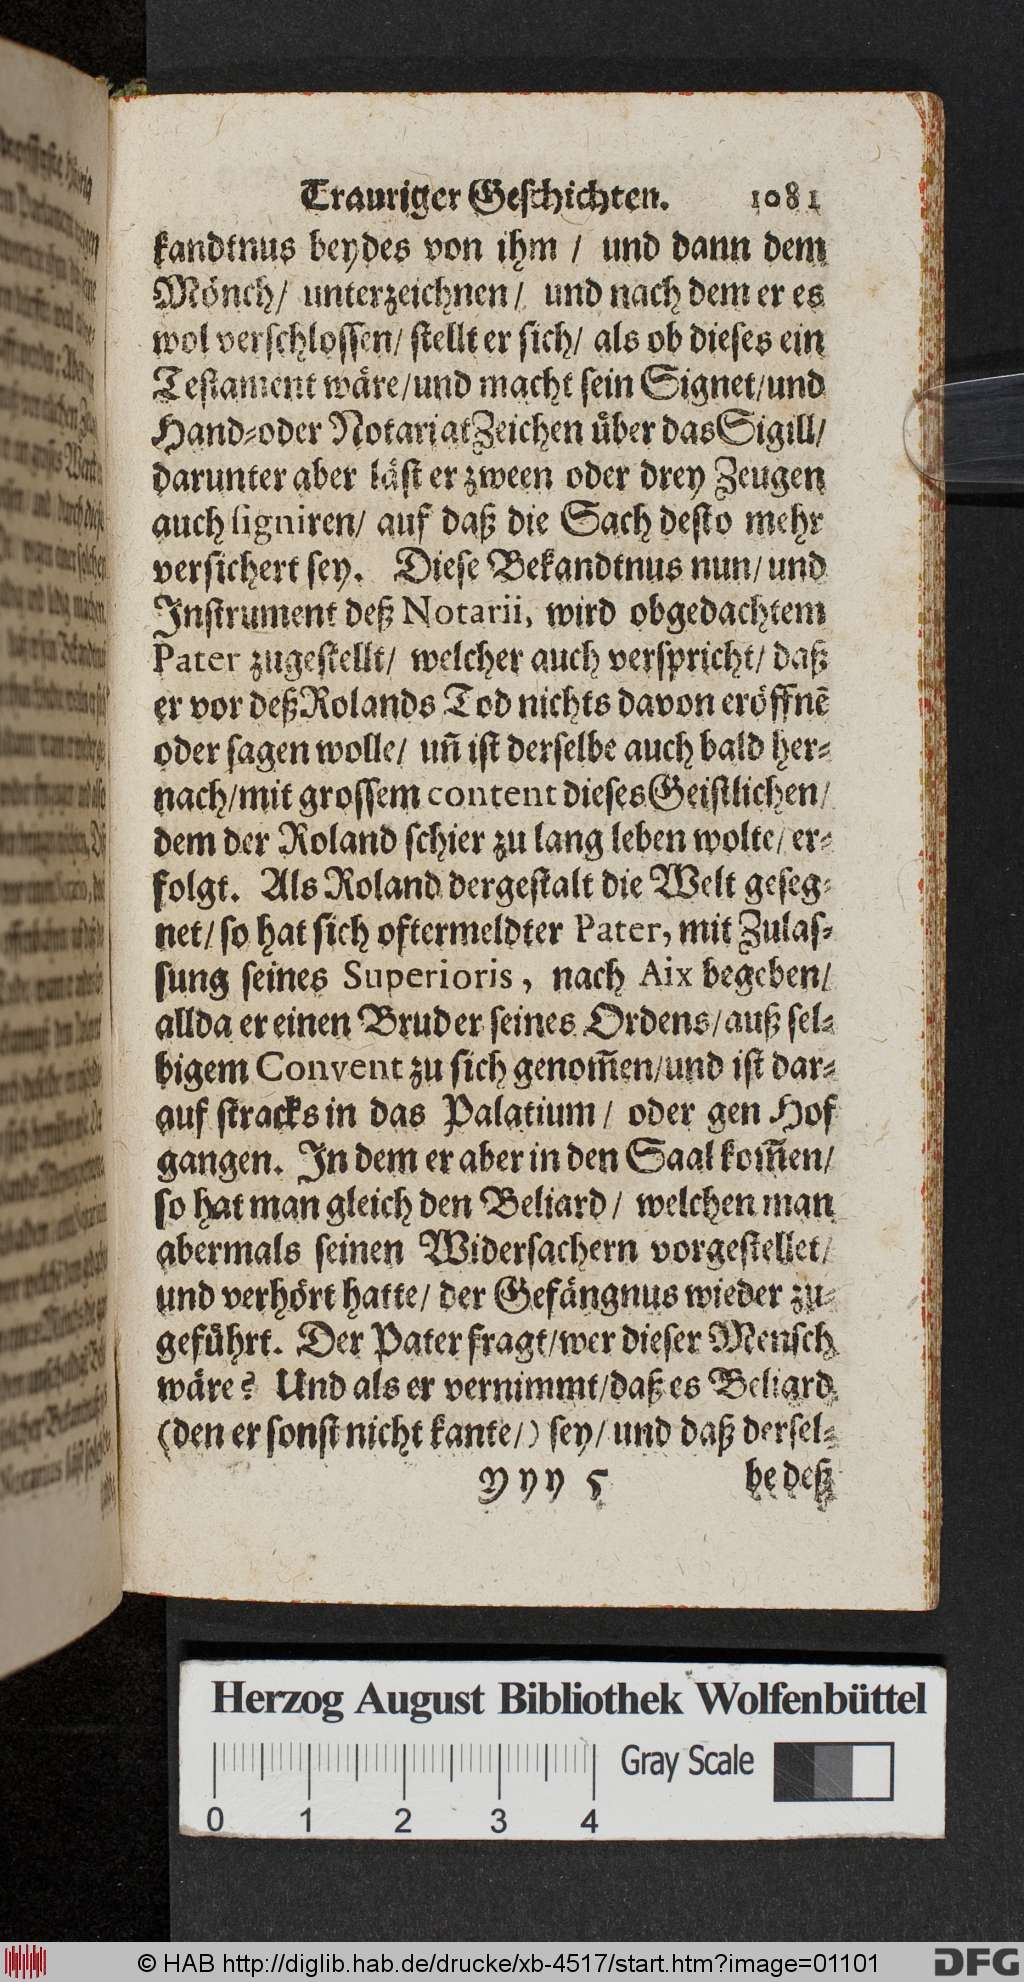 Trauriger Geschichten. 1081
kandtnus beydes von ihm / und dann dem
Mönch/ unterzeichnen/ und nach dem er es
wol verschlossen/ stellt er sich/ als ob dieses ein
Testament wäre/und macht sein Signet/und
Hand-oder NotariatZeichen über das Sigill/
darunter aber läst er zween oder drey Zeugen
auch signiren/ auf daß die Sach desto mehr
versichert sey. Diese Bekandtnus nun/ und
Instrument deß Notarii, wird obgedachtem
Pater zugestellt/ welcher auch verspricht/ daß
er vor deß Rolands Tod nichts davon eröffnē
oder sagen wolle/ uñ ist derselbe auch bald her-
nach/mit grossem content dieses Geistlichen/
dem der Roland schier zu lang leben wolte/ er-
folgt. Als Roland dergestalt die Welt geseg-
net/ so hat sich oftermeldter Pater, mit Zulas-
sung seines Superioris, nach Aix begeben/
allda er einen Bruder seines Ordens/auß sel-
bigem Convent zu sich genom̃en/und ist dar-
auf stracks in das Palatium / oder gen Hof
gangen. In dem er aber in den Saal kom̃en/
so hat man gleich den Beliard / welchen man
abermals seinen Widersachern vorgestellet/
und verhört hatte/ der Gefängnus wieder zu-
geführt. Der Pater fragt/wer dieser Mensch
wäre? Und als er vernimmt/daß es Beliard
(den er sonst nicht kante/) sey/ und daß dersel-
Yyy 5 be deß
Herzog August Bibliothek Wolfenbüttel
Gray Scale
0 1 2 3 4
© HAB http://diglib.hab.de/drucke/xb-4517/start.htm?image=01101
DFG